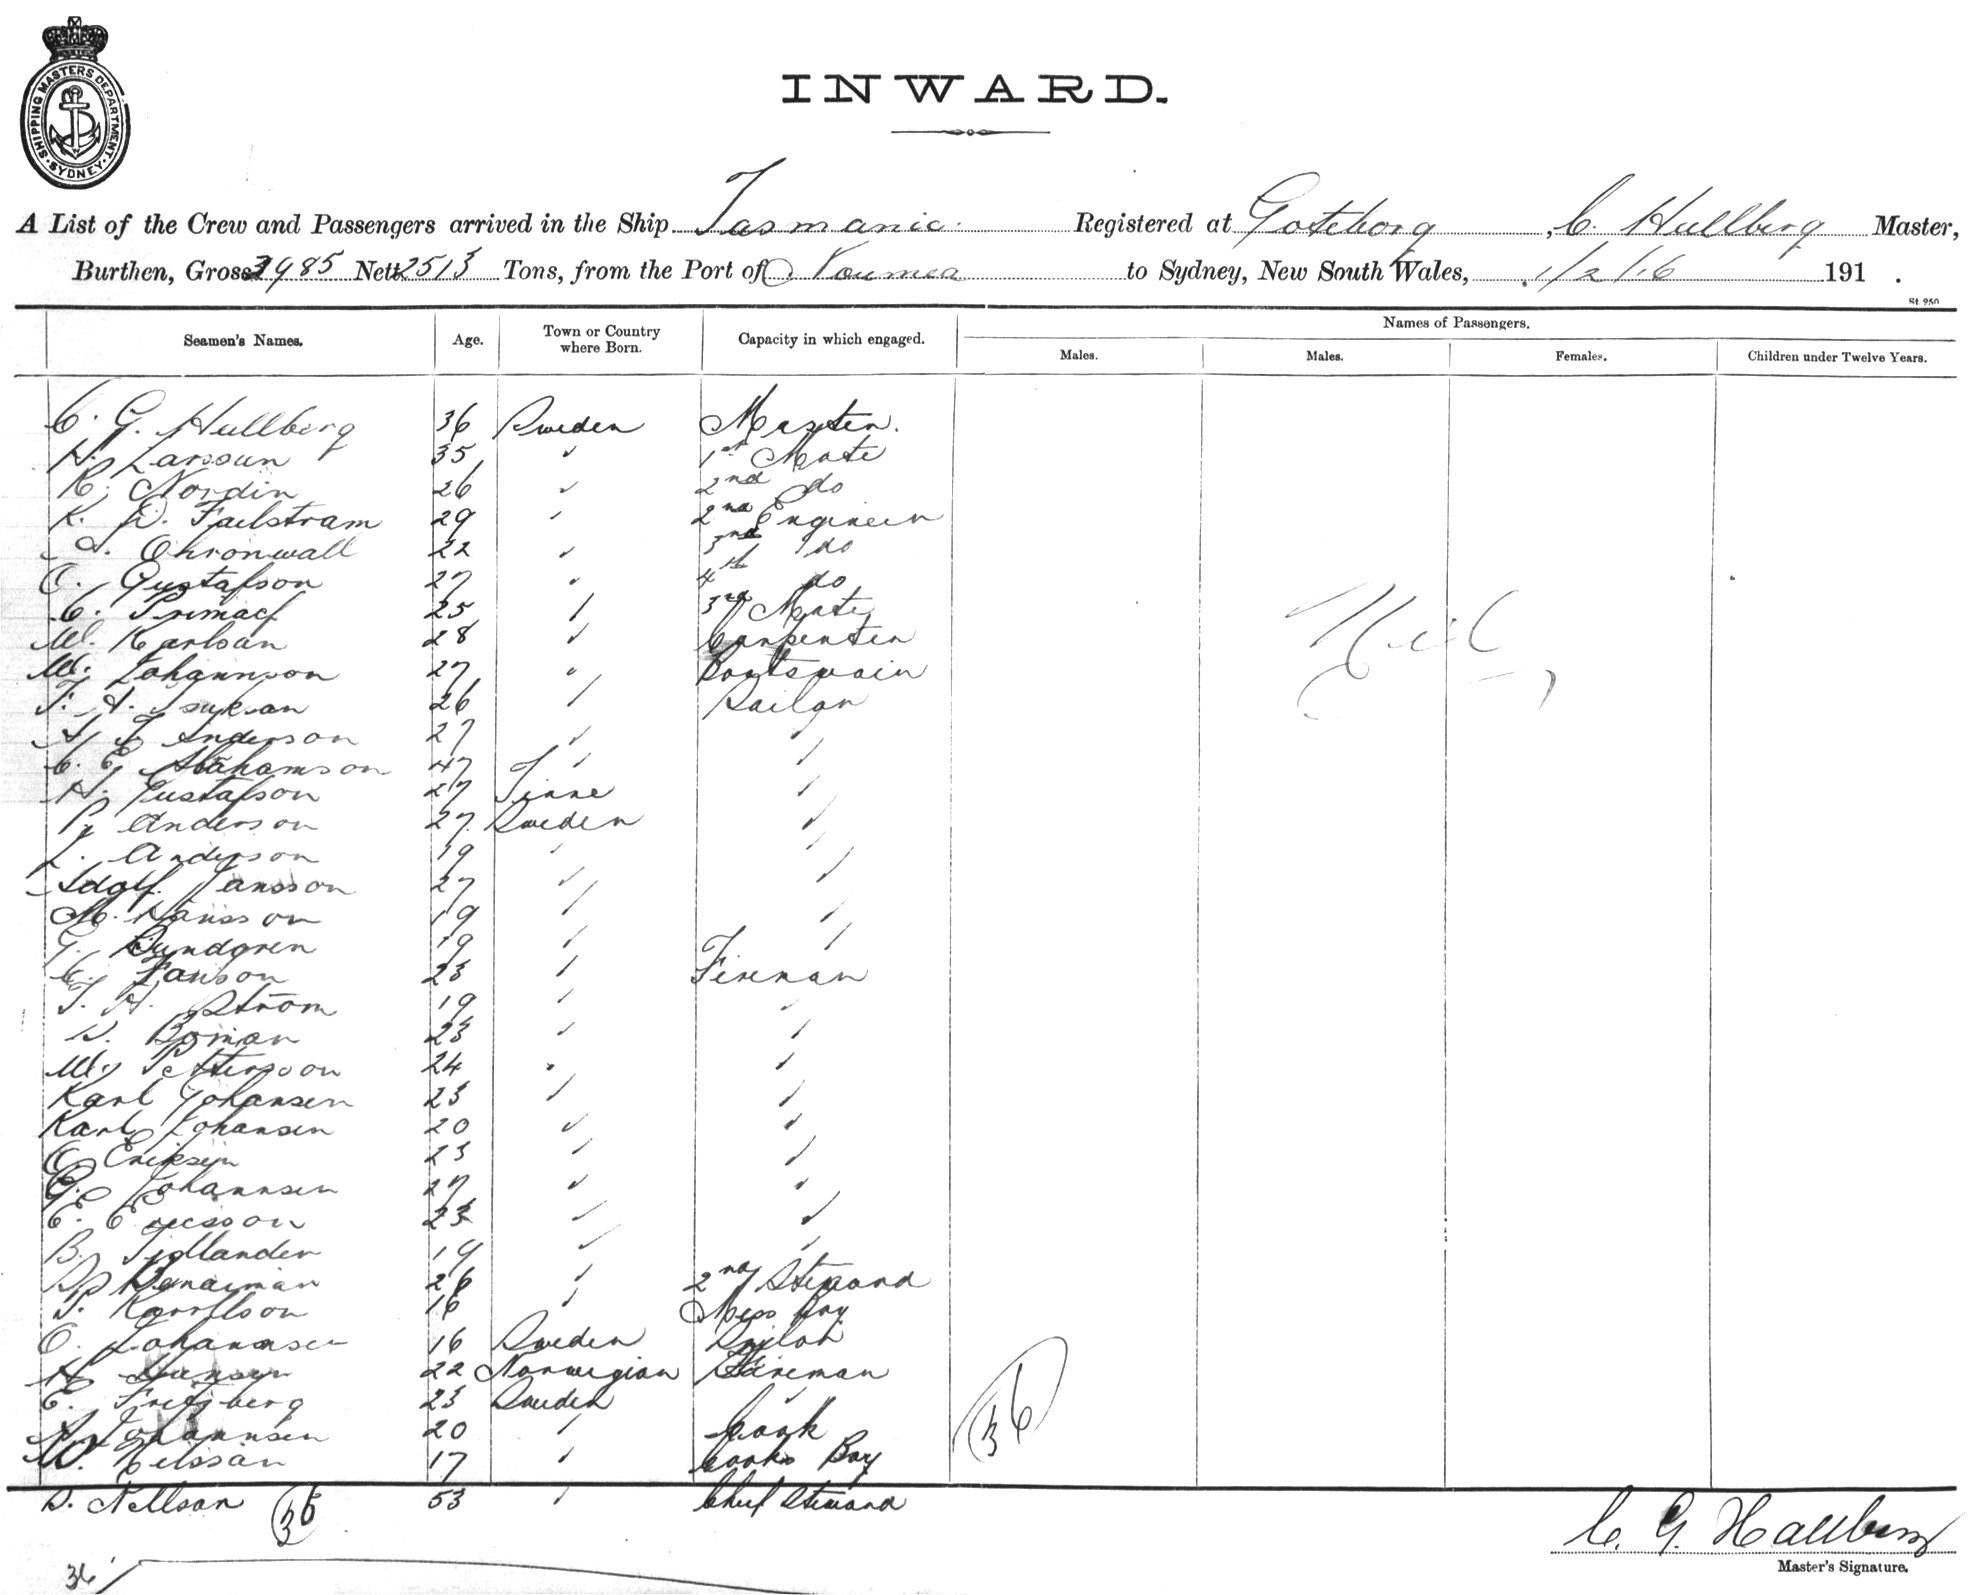 SHIPPING MASTERS DEPARTMENT · SYDNEY ·
INWARD.
A List of the Crew and Passengers arrived in the Ship Tasmanic. Registered at Goteborg, C. Hullberg Master,
Burthen, Gross 3985 Nett 2513 Tons, from the Port of Noumea to Sydney, New South Wales, 1/2/16 191 .
St 250
Seamen's Names. Age. Town or Country where Born. Capacity in which engaged. Names of Passengers.
Males. Males. Females. Children under Twelve Years.
C. G. Hullberg 36 Sweden Master.
Larsoun 35 " 1st Mate
K. Nordin 26 " 2nd do
K. D. Failstram 29 " 2nd Engineer
Ohronwall 22 " 3rd do
O. Gustafson 27 " 4th do
C. Primacf 25 " 3rd Mate
W. Karlsan 28 " Carpenter
W. Johannson 27 " Boatswain
F. A. 26 " Sailor
Anderson 27 " "
C. E. Abahamson 47 " "
H. Gustafson 27 Finne "
P. Anderson 27 Sweden "
L. Anderson 19 " "
Adolf. Jansson 27 " "
M. Hansson 19 " "
G. Lundgren 19 " "
C. Janson 23 " Fireman
F. H. Ström 19 " "
S. Boman 23 " "
W. Pettersoon 24 " "
Karl Johansen 23 " "
Karl Johansen 20 " "
O. Eriksen 23 " "
G. Johannsen 27 " "
E. Ericsson 23 " "
B. Tidllander 19 " "
26 " 2nd Steward
Karrlson 16 " Mess Boy
O. Johannsen 16 Sweden Sailor
H. Hansen 22 Norwegian Fireman
E. Freijberg 23 Sweden "
Johannsen 20 " Cook
W. Nilssan 17 " Cooks Boy
S. Nellson 53 " Chief Steward
Nil
36
36
36
C. G. Hallberg
Master's Signature.